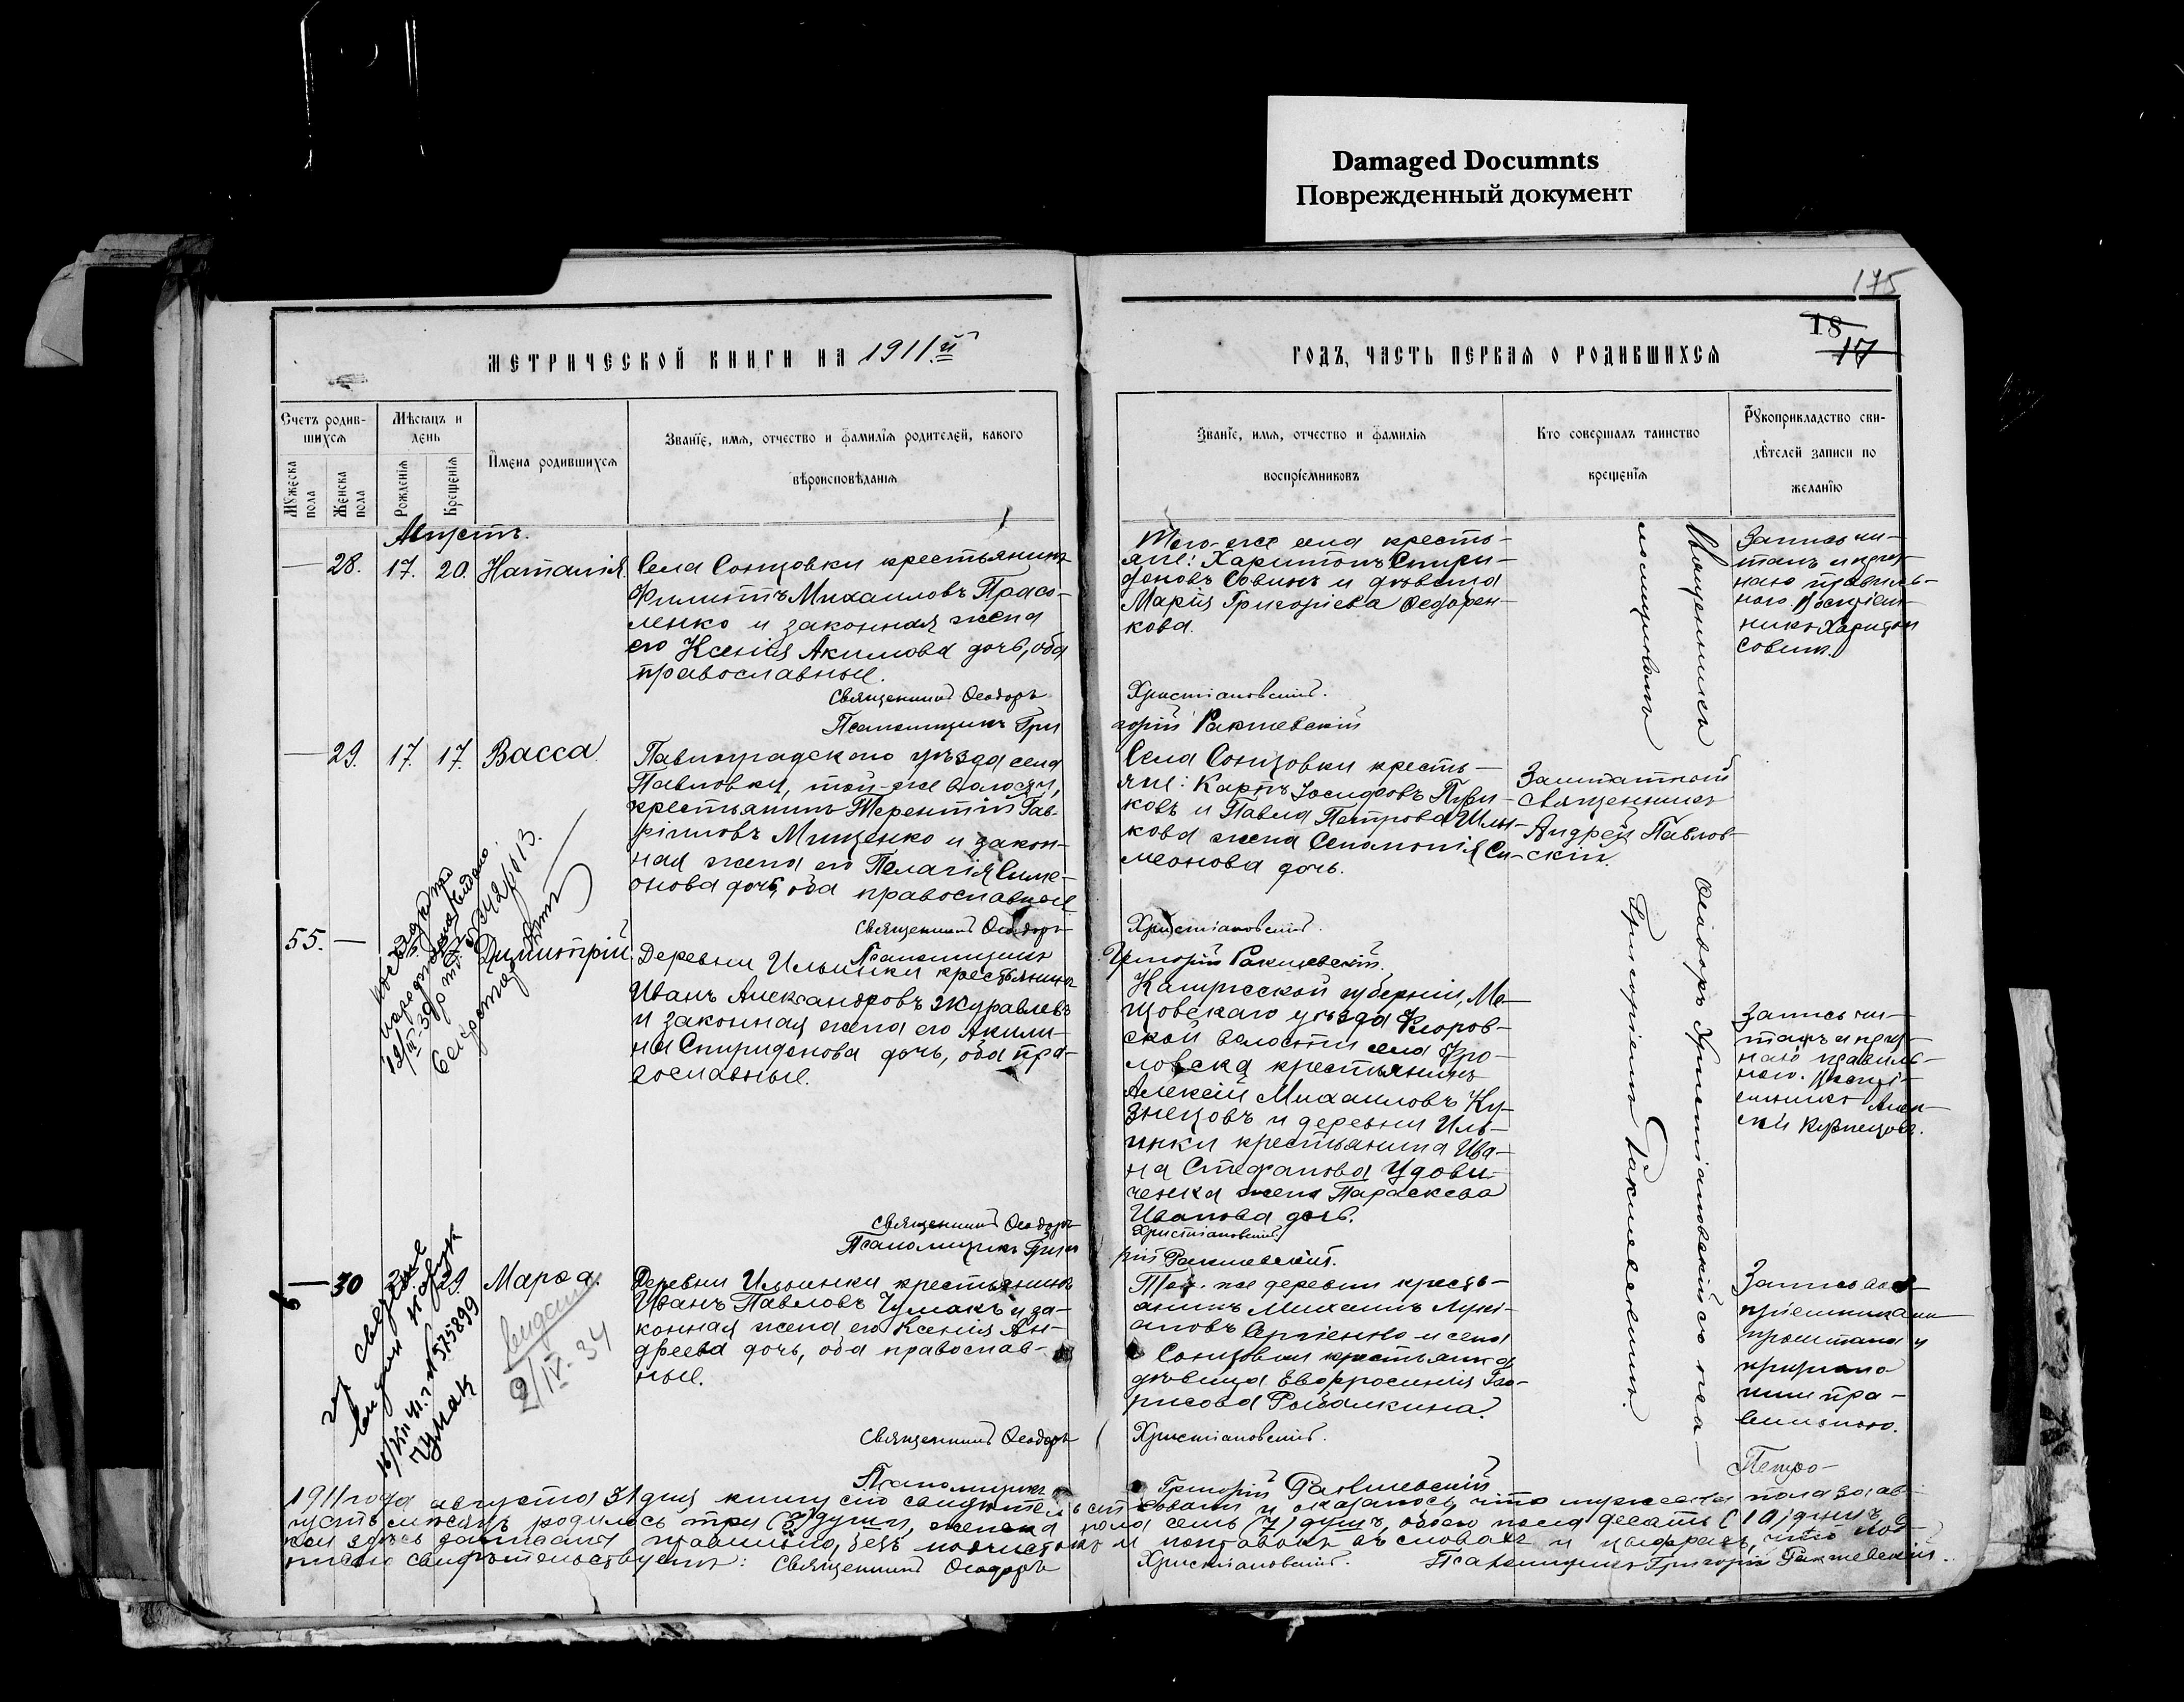 Damaged Documnts
Поврежденный документ
175
18
17
МЕТРИЧЕСКОЙ КНИГИ НА 1911й
ГОДЪ, ЧАСТЬ ПЕРВАЯ О РОДИВШИХСЯ
Счетъ родив-
шихся
Мужеска пола
Женска пола
Мѣсяцъ и
день
Рожденія
Крещенія
Имена родившихся
Званіе, имя, отчество и фамилія родителей, какого
вѣроисповѣданія
Званіе, имя, отчество и фамилія
воспріемниковъ
Кто совершалъ таинство
крещенія
Рукоприкладство сви-
дѣтелей записи по
желанію
Августъ.
— 28. 17. 20. Наталія.
Села Сонцовки крестьянинъ
Филиппъ Михаиловъ Прасо-
ленко и законная жена
его Ксенія Акимова дочь, оба
православные.
Священникъ Ѳеодоръ
Псаломщикъ Гри
Того-же села кресть-
яне: Харитонъ Спири-
доновъ Совинъ и дѣвица
Марія Григоріева Ѳедорен-
кова.
Христіановскій.
горій Ракшевскій
Запись чи-
талъ и приз-
наю правиль-
ною. Воспріем-
никъ Харитон
Совин.
— 29. 17. 17. Васса.
Павлоградскаго уѣзда села
Павловки, той-же волости,
крестьянинъ Терентій Гав-
ріиловъ Мищенко и закон-
ная жена его Пелагія Симе-
онова дочь, оба православные
Священникъ Ѳеодоръ
Псаломщикъ
Села Сонцовки кресть-
яне: Карпъ Іосифовъ
ковъ и Павла Петрова Иль-
кова жена Си-
меонова дочь.
Христіановскій.
Григорій Ракшевскій.
Заштатный
священникъ
Андрей Павлов-
скій.
55. — Димитрій.
Деревни Ильинки крестьянинъ
Иванъ Александровъ Журавлевъ
и законная жена его Акили-
на Спиридонова дочь, оба пра-
вославные.
Священникъ Ѳеодоръ
Псаломщикъ Григо
Калужской губерніи, Ме-
щовскаго уѣзда
ской волости села
крестьянинъ
Алексій Михаиловъ Ку-
знецовъ и деревни Иль-
инки крестьянина Ива-
на Стефанова Удови-
ченка жена Параскева
Иванова дочь.
Христіановскій
рій Ракшевскій.
Запись чи-
талъ и приз-
наю правиль-
ною. Воспрі-
емникъ Алек-
сей Кузнецовъ.
— 30 29. Марѳа.
Деревни Ильинки крестьянинъ
Иванъ Павловъ Чумакъ и за-
конная жена его Ксенія Ан-
дреева дочь, оба православ-
ные.
Священникъ Ѳеодоръ
Псаломщикъ
Той-же деревни кресть-
янинъ Михаилъ Луки-
ановъ Сергіенко и села
Сонцовки крестьянка
дѣвица Евфросинія Бо-
рисова Рыбалкина.
Христіановскій.
Григорій Ракшевскій
Запись вос-
пріемниками
прочтана и
признана
ими пра-
вильною.
Священникъ Ѳеодоръ Христіановскій со пса-
ломщикомъ Григоріемъ Ракшевскимъ.
12/IV 39
Чумак
N 575899
2/IV-34
1911 года августа 31 дня книгу сію свидѣтельствовали и оказалось, что мужеска пола за ав-
густъ мѣсяцъ родилось три (3) души, женска пола семь (7) душъ, обоего пола десять (10) душъ,
кои здѣсь записаны правильно, безъ подчистокъ и поправокъ въ словахъ и цифрахъ, что под-
писью свидѣтельствуемъ: Священникъ Ѳеодоръ Христіановскій. Псаломщикъ Григорій Ракшевскій.